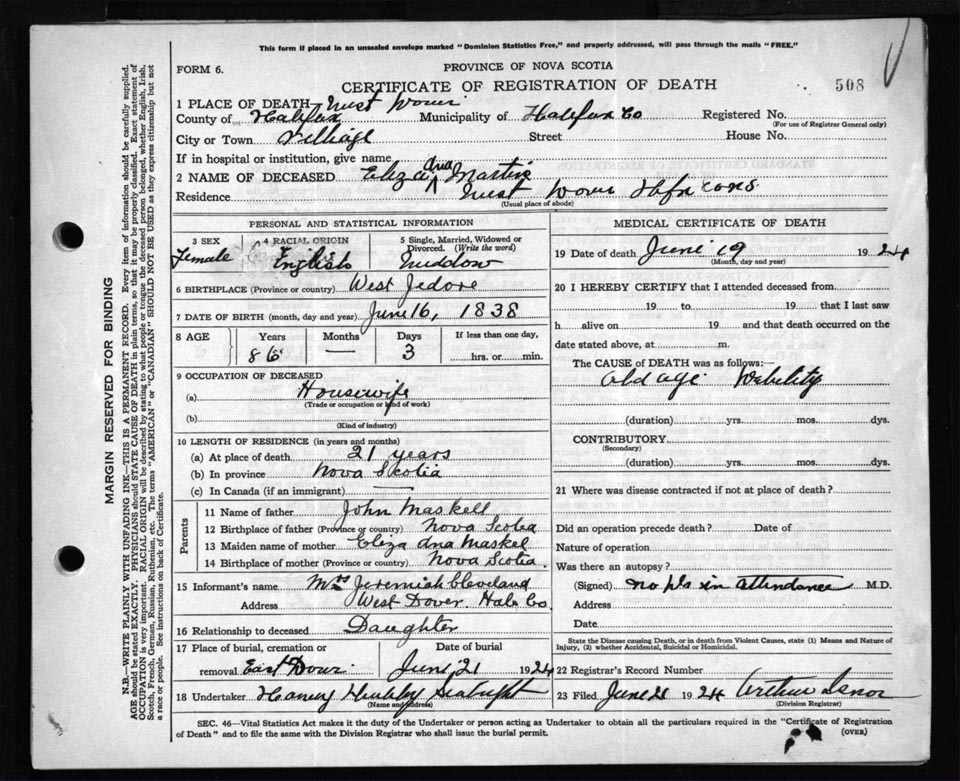 This form if placed in an unsealed envelope marked "Dominion Statistics Free," and properly addressed, will pass through the mails "FREE."
FORM 6.
PROVINCE OF NOVA SCOTIA
CERTIFICATE OF REGISTRATION OF DEATH
508
1 PLACE OF DEATH West Dover
County of Halifax Municipality of Halifax Co Registered No.
(For use of Registrar General only)
City or Town Village Street House No.
If in hospital or institution, give name
2 NAME OF DECEASED Eliza Ana Martin
Residence West Dover Hfx
(Usual place of abode)
PERSONAL AND STATISTICAL INFORMATION
3 SEX
Female
4 RACIAL ORIGIN
English
5 Single, Married, Widowed or Divorced. (Write the word)
Widdow
6 BIRTHPLACE (Province or country) West Jedore
7 DATE OF BIRTH (month, day and year) June 16, 1838
8 AGE Years Months Days If less than one day,
86 — 3 hrs. or min.
9 OCCUPATION OF DECEASED
(a) Housewife
(Trade or occupation or kind of work)
(b)
(Kind of industry)
10 LENGTH OF RESIDENCE (in years and months)
(a) At place of death 21 years
(b) In province Nova Scotia
(c) In Canada (if an immigrant) —
Parents
11 Name of father John Maskell
12 Birthplace of father (Province or country) Nova Scotia
13 Maiden name of mother Eliza Ana Maskel
14 Birthplace of mother (Province or country) Nova Scotia.
15 Informant's name Mrs Jeremiah Cleveland
Address West Dover. Halx Co
16 Relationship to deceased Daughter
17 Place of burial, cremation or Date of burial
removal East Dover June 21 1924
18 Undertaker Seabright
(Name and address)
MEDICAL CERTIFICATE OF DEATH
19 Date of death June 19 1924
(Month, day and year)
20 I HEREBY CERTIFY that I attended deceased from
19 to 19 that I last saw
h alive on 19 and that death occurred on the
date stated above, at m.
The CAUSE of DEATH was as follows:—
Old age Debility
(duration) yrs. mos. dys.
CONTRIBUTORY
(Secondary)
(duration) yrs. mos. dys.
21 Where was disease contracted if not at place of death?
Did an operation precede death? Date of
Nature of operation
Was there an autopsy?
(Signed) no in attendance M.D.
Address
Date
State the Disease causing Death, or in death from Violent Causes, state (1) Means and Nature of Injury, (2) whether Accidental, Suicidal or Homicidal.
22 Registrar's Record Number
23 Filed June 21 1924 Arthur
(Division Registrar)
SEC. 46—Vital Statistics Act makes it the duty of the Undertaker or person acting as Undertaker to obtain all the particulars required in the "Certificate of Registration
of Death" and to file the same with the Division Registrar who shall issue the burial permit.
(OVER)
MARGIN RESERVED FOR BINDING
N.B.—WRITE PLAINLY WITH UNFADING INK—THIS IS A PERMANENT RECORD. Every item of information should be carefully supplied.
AGE should be stated EXACTLY. PHYSICIANS should STATE CAUSE OF DEATH in plain terms, so that it may be properly classified. Exact statement of
OCCUPATION is very important. RACIAL ORIGIN will be described by stating to what people or tongue the deceased person belonged, whether English, Irish,
Scotch, French, German, Russian, Ruthenian, etc. The terms "AMERICAN" or "CANADIAN" SHOULD NOT BE USED as they express citizenship but not
a race or people. See instructions on back of Certificate.